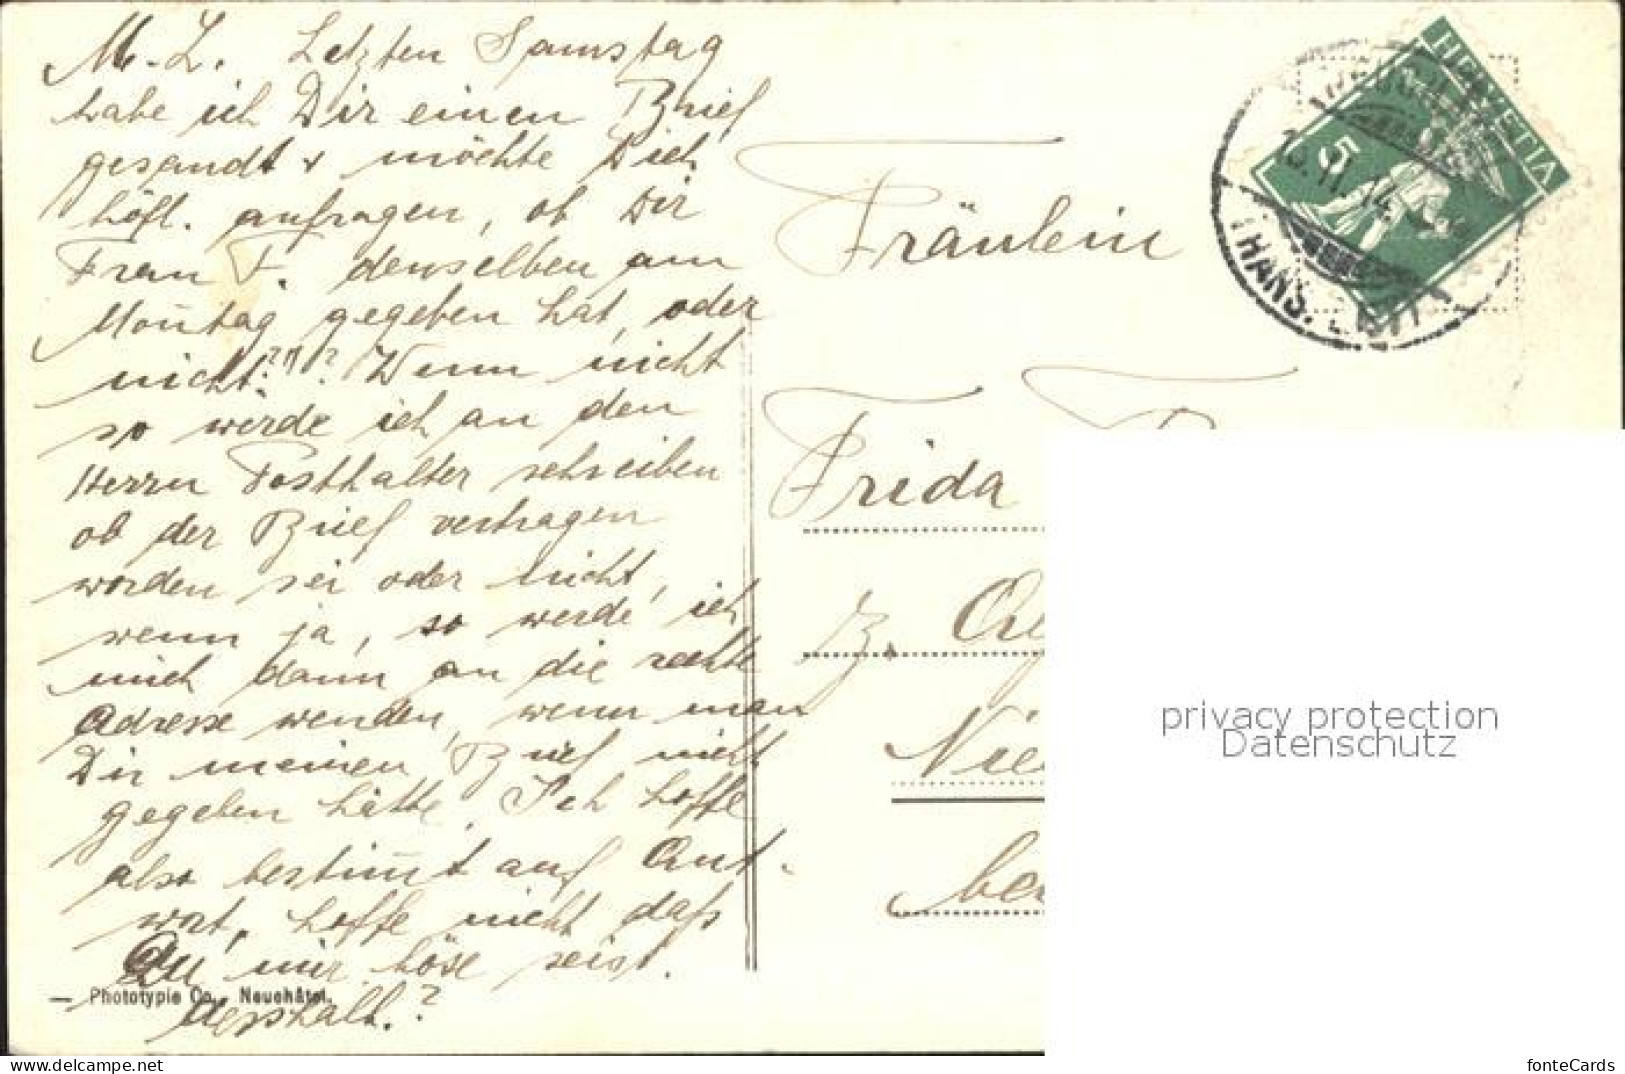 M. L. Letzten Samstag
habe ich Dir einen Brief
gesandt & möchte Dich
höfl. anfragen, ob Dir
Frau F. denselben am
Montag gegeben hat, oder
nicht?"? Wenn nicht
so würde ich an den
Herrn Posthalter schreiben
ob der Brief vertragen
worden sei oder nicht,
wenn ja, so werde ich
mich dann an die rechte
Adresse wenden, wenn man
Dir meinen Brief nicht
gegeben hätte. Ich hoffe
also bestimmt auf Ant-
wort, hoffe nicht daß
Du mir böse seist.
desshalb.?
— Phototypie Co., Neuchâtel.
Fräulein
Frida
z.
Nie
bei
HELVETIA
5
THANS.
privacy protection
Datenschutz
fonteCards